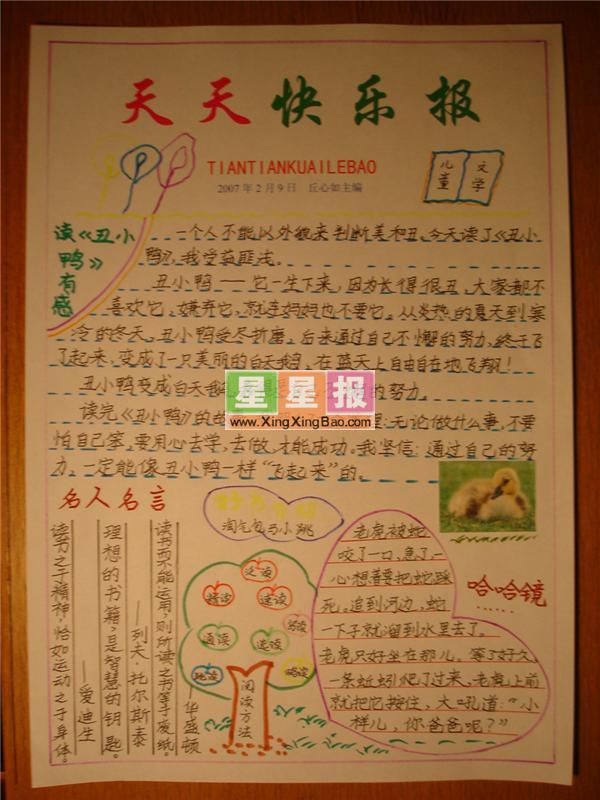 天天快乐报
TIANTIANKUAILEBAO
2007年2月9日 丘心如主编
儿童
文学
读《丑小鸭》有感
一个人不能以外貌来判断美和丑。今天读了《丑小
鸭》,我受益匪浅。
丑小鸭——它一生下来,因为长得很丑,大家都不
喜欢它,嫌弃它,就连妈妈也不要它。从炎热的夏天到寒
冷的冬天,丑小鸭受尽折磨,后来通过自己不懈的努力,终于飞
了起来,变成了一只美丽的白天鹅,在蓝天上自由自在地飞翔!
丑小鸭变成白天鹅
的努力。
读完《丑小鸭》的故
理:无论做什么事,不要
怕自己笨,要用心去学,去做,才能成功。我坚信:通过自己的努
力,一定能像丑小鸭一样“飞起来”的。
星星报
www.XingXingBao.com
名人名言
读书而不能运用,则所读之书等于废纸。
——华盛顿
理想的书籍,是智慧的钥匙。
——列夫·托尔斯泰
读书之于精神,恰如运动之于身体。
——爱迪生
淘气包马小跳
泛读
速读
通读
选读
阅读方法
老虎被蛇
咬了一口,急了一
心想着要把蛇踩
死。追到河边,蛇
一下子就溜到水里去了。
老虎只好坐在那儿。等了好久,
一条蚯蚓爬了过来,老虎上前
就把它按住,大吼道:“小
样儿,你爸爸呢?”
哈哈镜